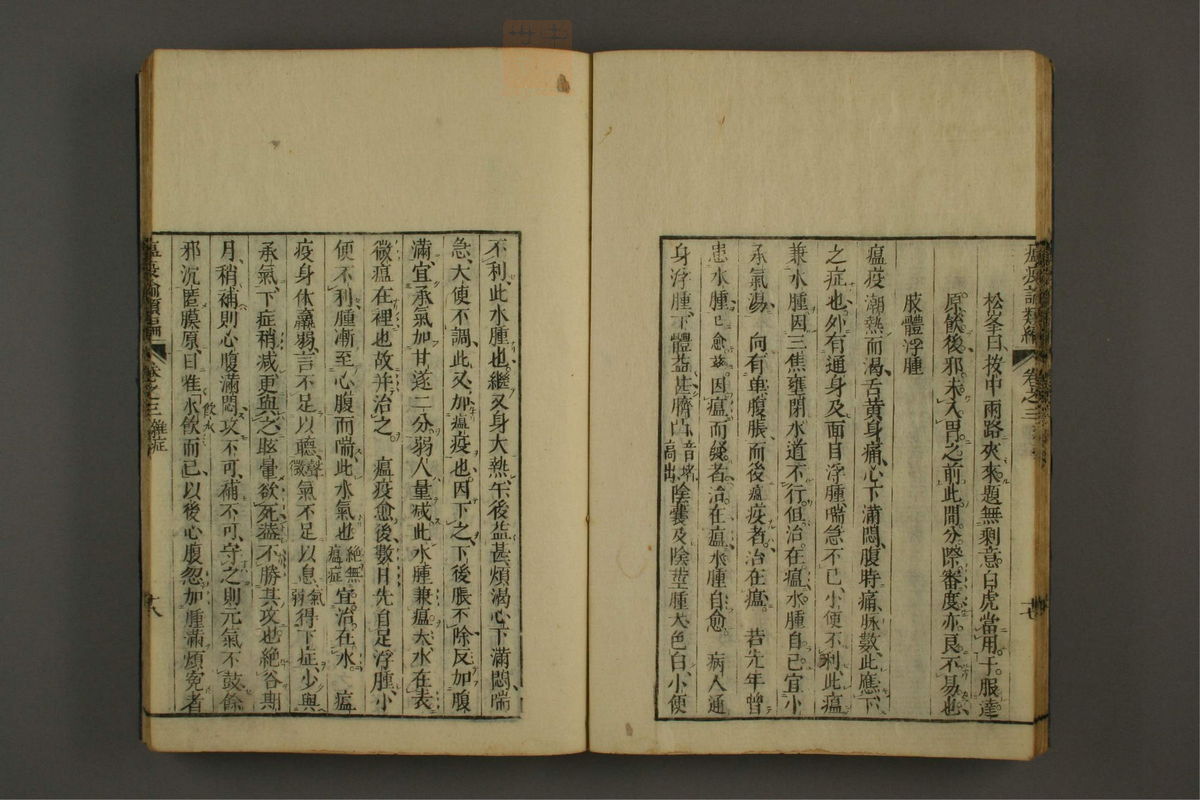 瘟疫論類編 卷之三
松峯曰按中兩路夾來題無剩意白虎當用于服達
原飲後邪未入胃之前此間分際審度亦良不易也
肢體浮腫
瘟疫潮熱而渴舌黄身痛心下滿悶腹時痛脉數此應下
之症也外有通身及面目浮腫喘急不已小便不利此瘟
兼水腫因三焦壅閉水道不行但治在瘟水腫自已宜小
承氣湯 向有單腹脹而後瘟疫者治在瘟 若先年曾
患水腫已愈茲因瘟而發者治在瘟水腫自愈 病人通
身浮腫下體益甚臍凸音埃高出陰囊及陰莖腫大色白小便
不利此水腫也繼又身大熱午後益甚煩渴心下滿悶喘
急大便不調此又加瘟疫也因下之下後脹不除反加腹
滿宜承氣加甘遂二分弱人量减此水腫兼瘟大水在表
微瘟在裡也故并治之 瘟疫愈後數月先自足浮腫小
便不利腫漸至心腹而喘此水氣也絶無瘟症宜治在水 瘟
疫身体羸弱言不足以聽聲微氣不足以息氣弱得下症少與
承氣下症稍减更與之眩暈欲死蓋不勝其攻也絶谷期
月稍補則心腹滿悶攻不可補不可守之則元氣不鼓餘
邪沉匿膜原日惟水飲飲水而已以後心腹忽加腫滿煩寃者
瘟疫論類編 卷之三 雜症 十八